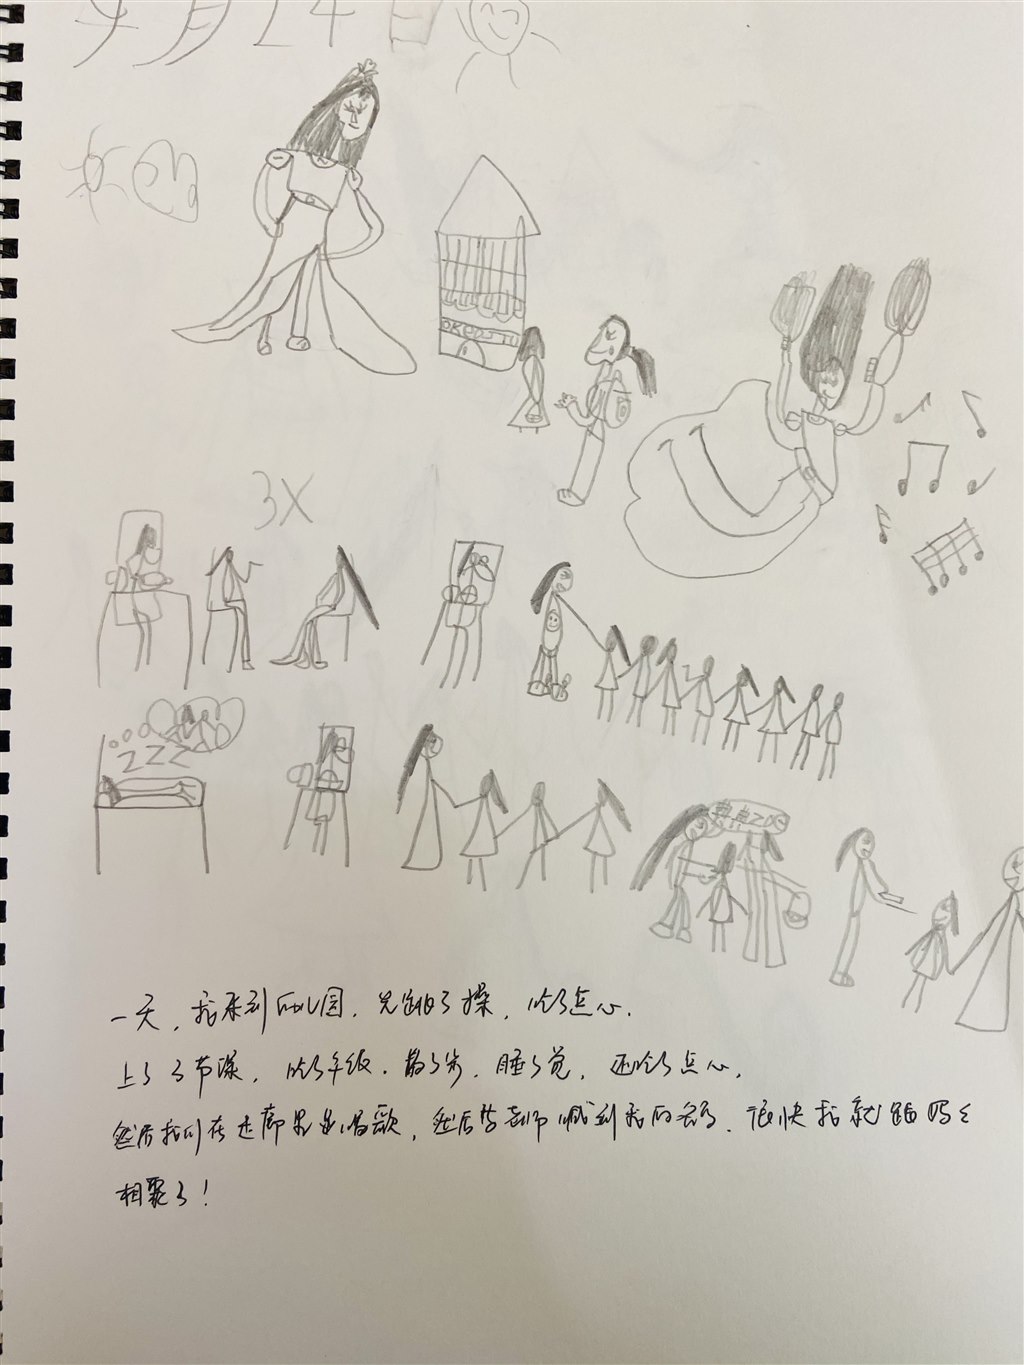 月24日
3X
ZZZ
一天，我来到幼儿园，先跳了操，吃了点心。
上了3节课，吃了午饭，散了步，睡了觉，还吃了点心，
然后我们在走廊里唱歌，然后老师喊到我的名字，很快我就跟妈妈
相聚了！